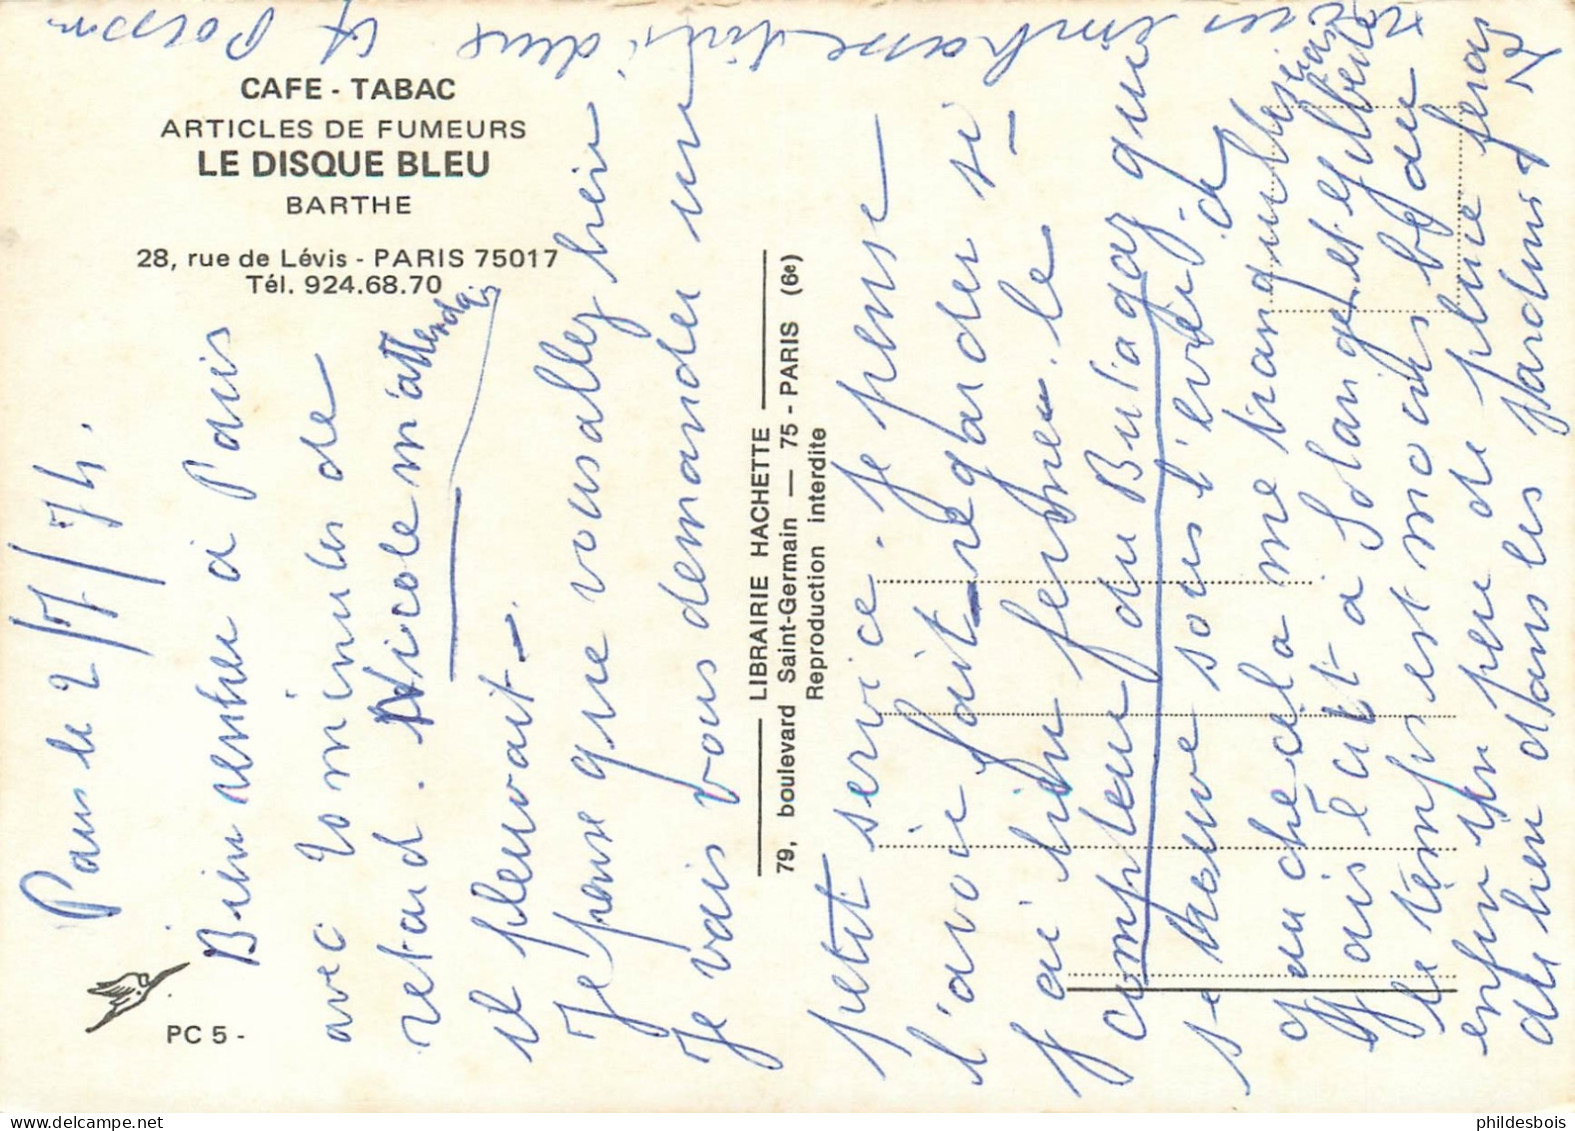 CAFE - TABAC
ARTICLES DE FUMEURS
LE DISQUE BLEU
BARTHE
28, rue de Lévis - PARIS 75017
Tél. 924.68.70
PC 5 -
LIBRAIRIE HACHETTE
79, boulevard Saint-Germain — 75 - PARIS (6e)
Reproduction interdite
Paris le 2/7/74.
Bien rentrée à Paris
avec 20 minutes de
retard. Nicole m'attendais
il pleuvait -
Je pense que vous allez bien
Je vais vous demander un
petit service. Je pense
l'avoir fait - regarder si
j'ai bien fermer. le
compteur du But'agaz qui
se trouve sous l'évier.
du chécla me tranquillise
Jais écrit à Solange et Gilberte
le temps est moins beau
enfin un peu de pluie feras
du bien dans les jardins
embrasse
phildesbois